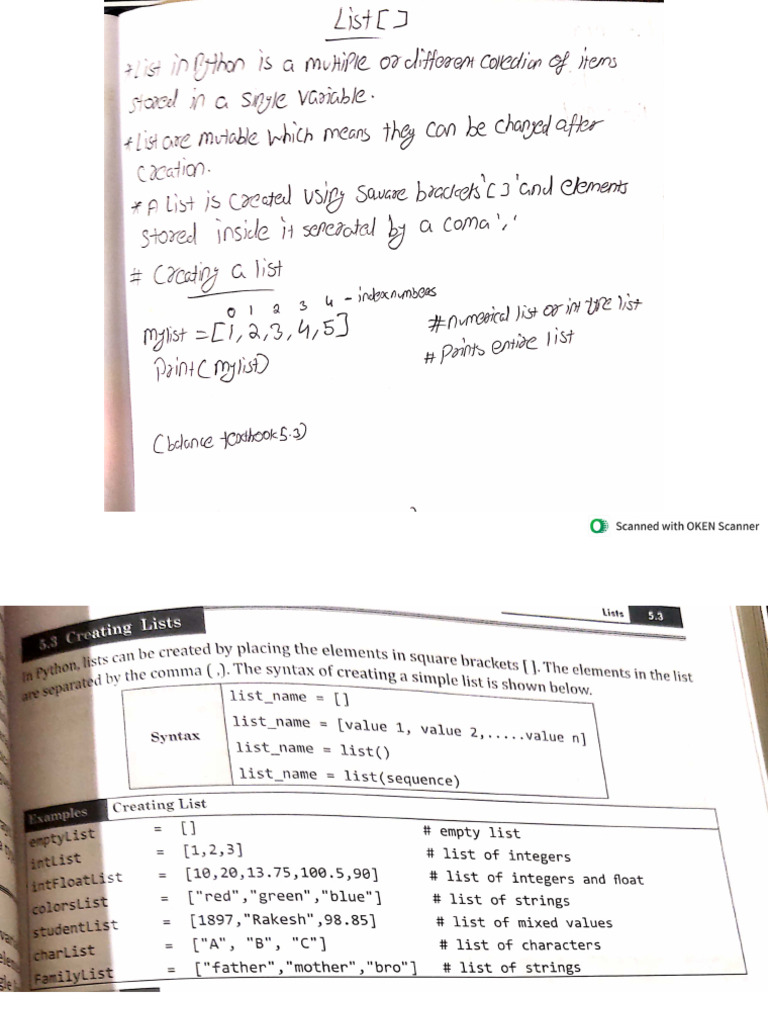 List[]
*List in Python is a multiple or different collection of items
stored in a single variable.
*List are mutable which means they can be changed after
creation.
*A list is created using square brackets '[]' and elements
stored inside it seperated by a coma ','
# Creating a list
0 1 2 3 4 - index numbers
mylist = [1,2,3,4,5] # numerical list or int type list
Print(mylist) # Prints entire list
(balance textbook 5.3)
Scanned with OKEN Scanner
Lists 5.3
5.3 Creating Lists
In Python, lists can be created by placing the elements in square brackets [ ]. The elements in the list
are separated by the comma ( , ). The syntax of creating a simple list is shown below.
list_name = []
list_name = [value 1, value 2,.....value n]
Syntax
list_name = list()
list_name = list(sequence)
Examples Creating List
emptyList = [] # empty list
intList = [1,2,3] # list of integers
intFloatList = [10,20,13.75,100.5,90] # list of integers and float
colorsList = ["red","green","blue"] # list of strings
studentList = [1897,"Rakesh",98.85] # list of mixed values
charList = ["A", "B", "C"] # list of characters
FamilyList = ["father","mother","bro"] # list of strings